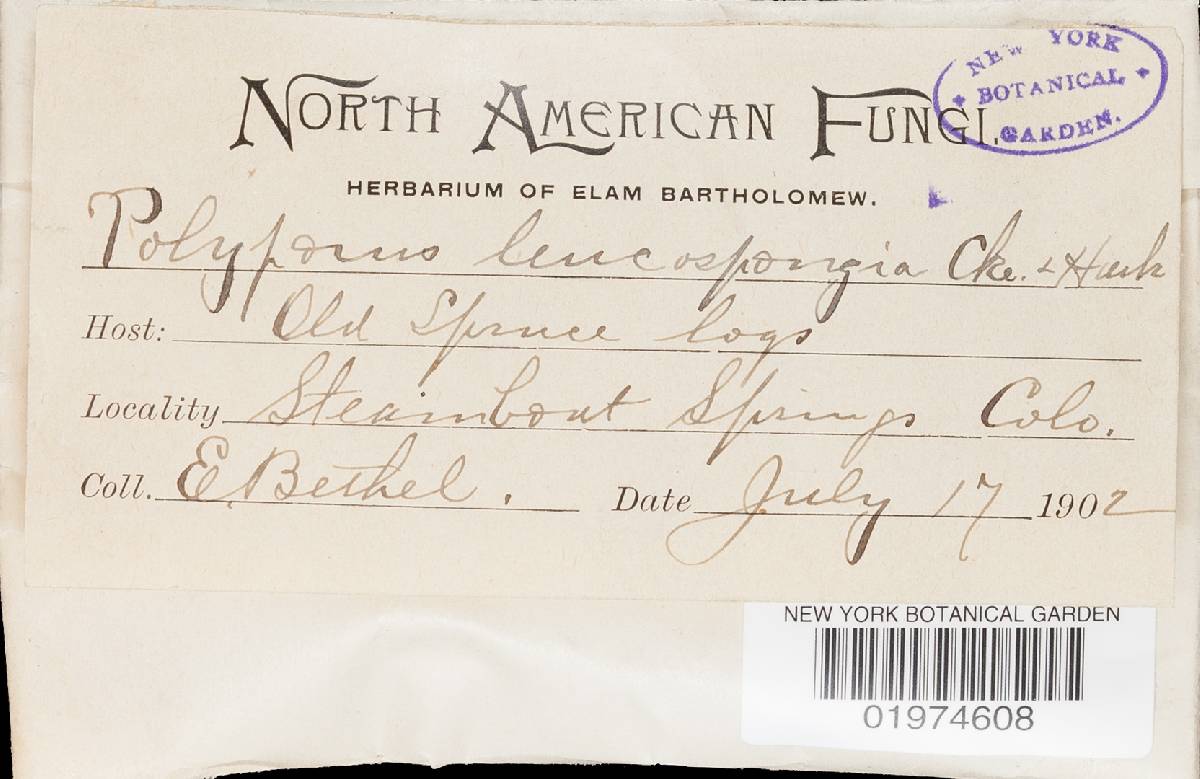 NORTH AMERICAN FUNGI.
NEW YORK
BOTANICAL
GARDEN.
HERBARIUM OF ELAM BARTHOLOMEW.
Polyporus leucospongia Cke. & Hark
Host: Old Spruce logs
Locality Steamboat Springs Colo.
Coll. E. Bethel. Date July 17 1902
NEW YORK BOTANICAL GARDEN
01974608